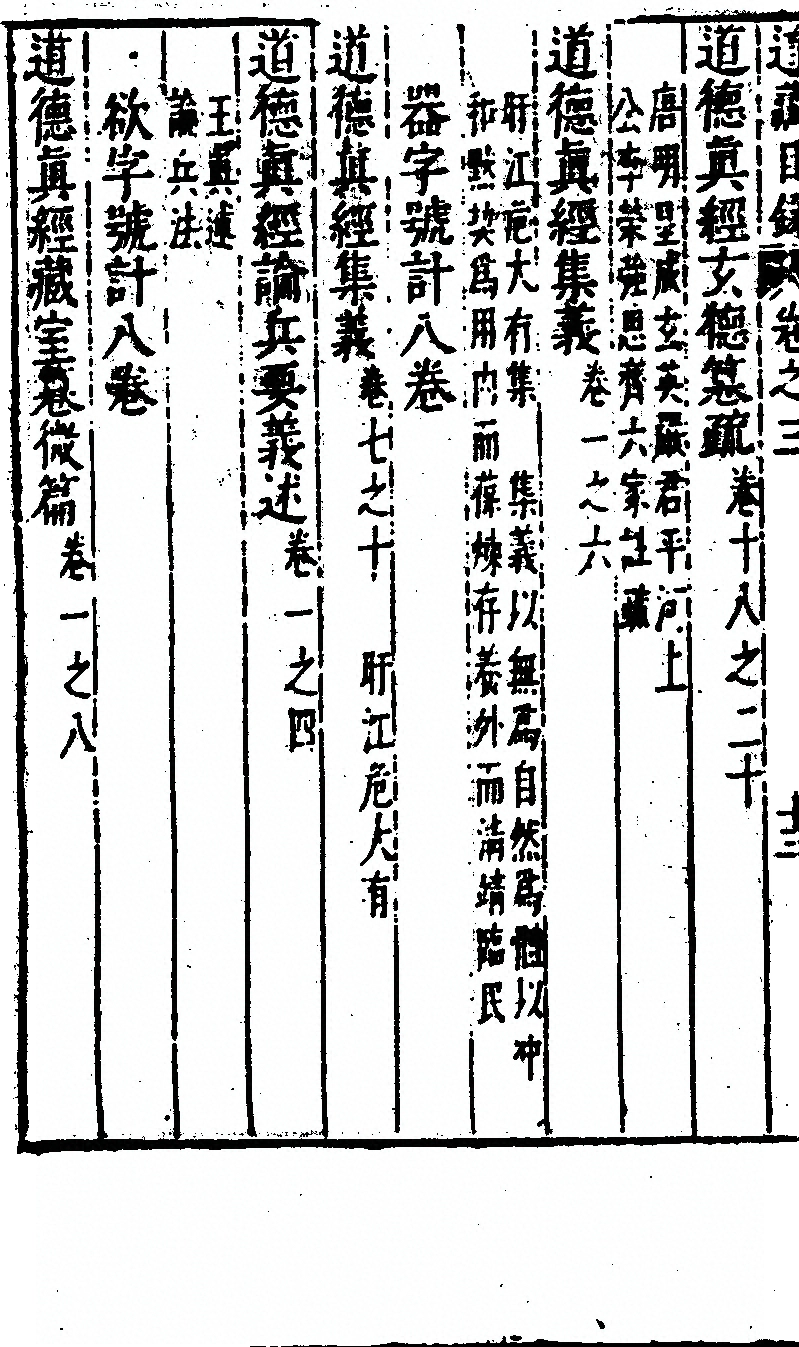 道藏目錄 卷之三 十三
道德眞經玄德纂疏卷十八之二十
唐明皇成玄英嚴君平河上
公李榮強思齊六家註疏
道德眞經集義卷一之六
盱江危大有集 集義以無爲自然爲體以冲
和默契爲用内而葆煉存養外而清靖臨民
器字號計八卷
道德眞經集義卷七之十 盱江危大有
道德眞經論兵要義述卷一之四
王眞述
論兵法
欲字號計八卷
道德眞經藏室纂微篇卷一之八